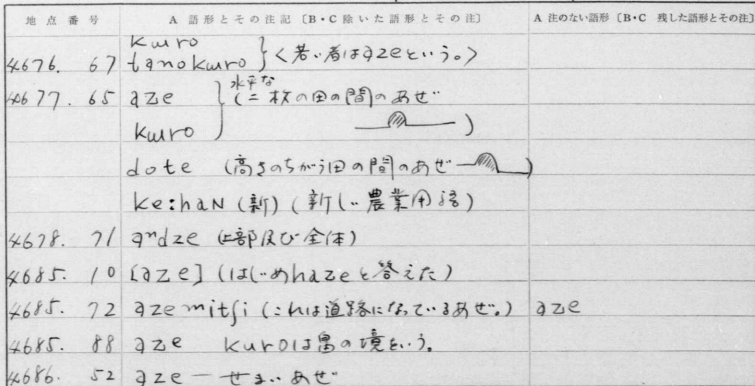 地点番号 A 語形とその注記〔B・C 除いた語形とその注〕 A 注のない語形〔B・C 残した語形とその注〕
kuro
4676. 67 tanokuro 〈若い者はazeという。〉
4677. 65 aze (水平な二枚の田の間のあぜ
kuro )
dote (高さのちがう田の間のあぜ )
ke:haN (新) (新しい農業用語)
4678. 71 andze (上部及び全体)
4685. 10 [aze] (はじめhazeと答えた)
4685. 72 azemitʃi (これは道路になっているあぜ。) aze
4685. 88 aze kuroは畠の境をいう。
4686. 52 aze ― せまいあぜ